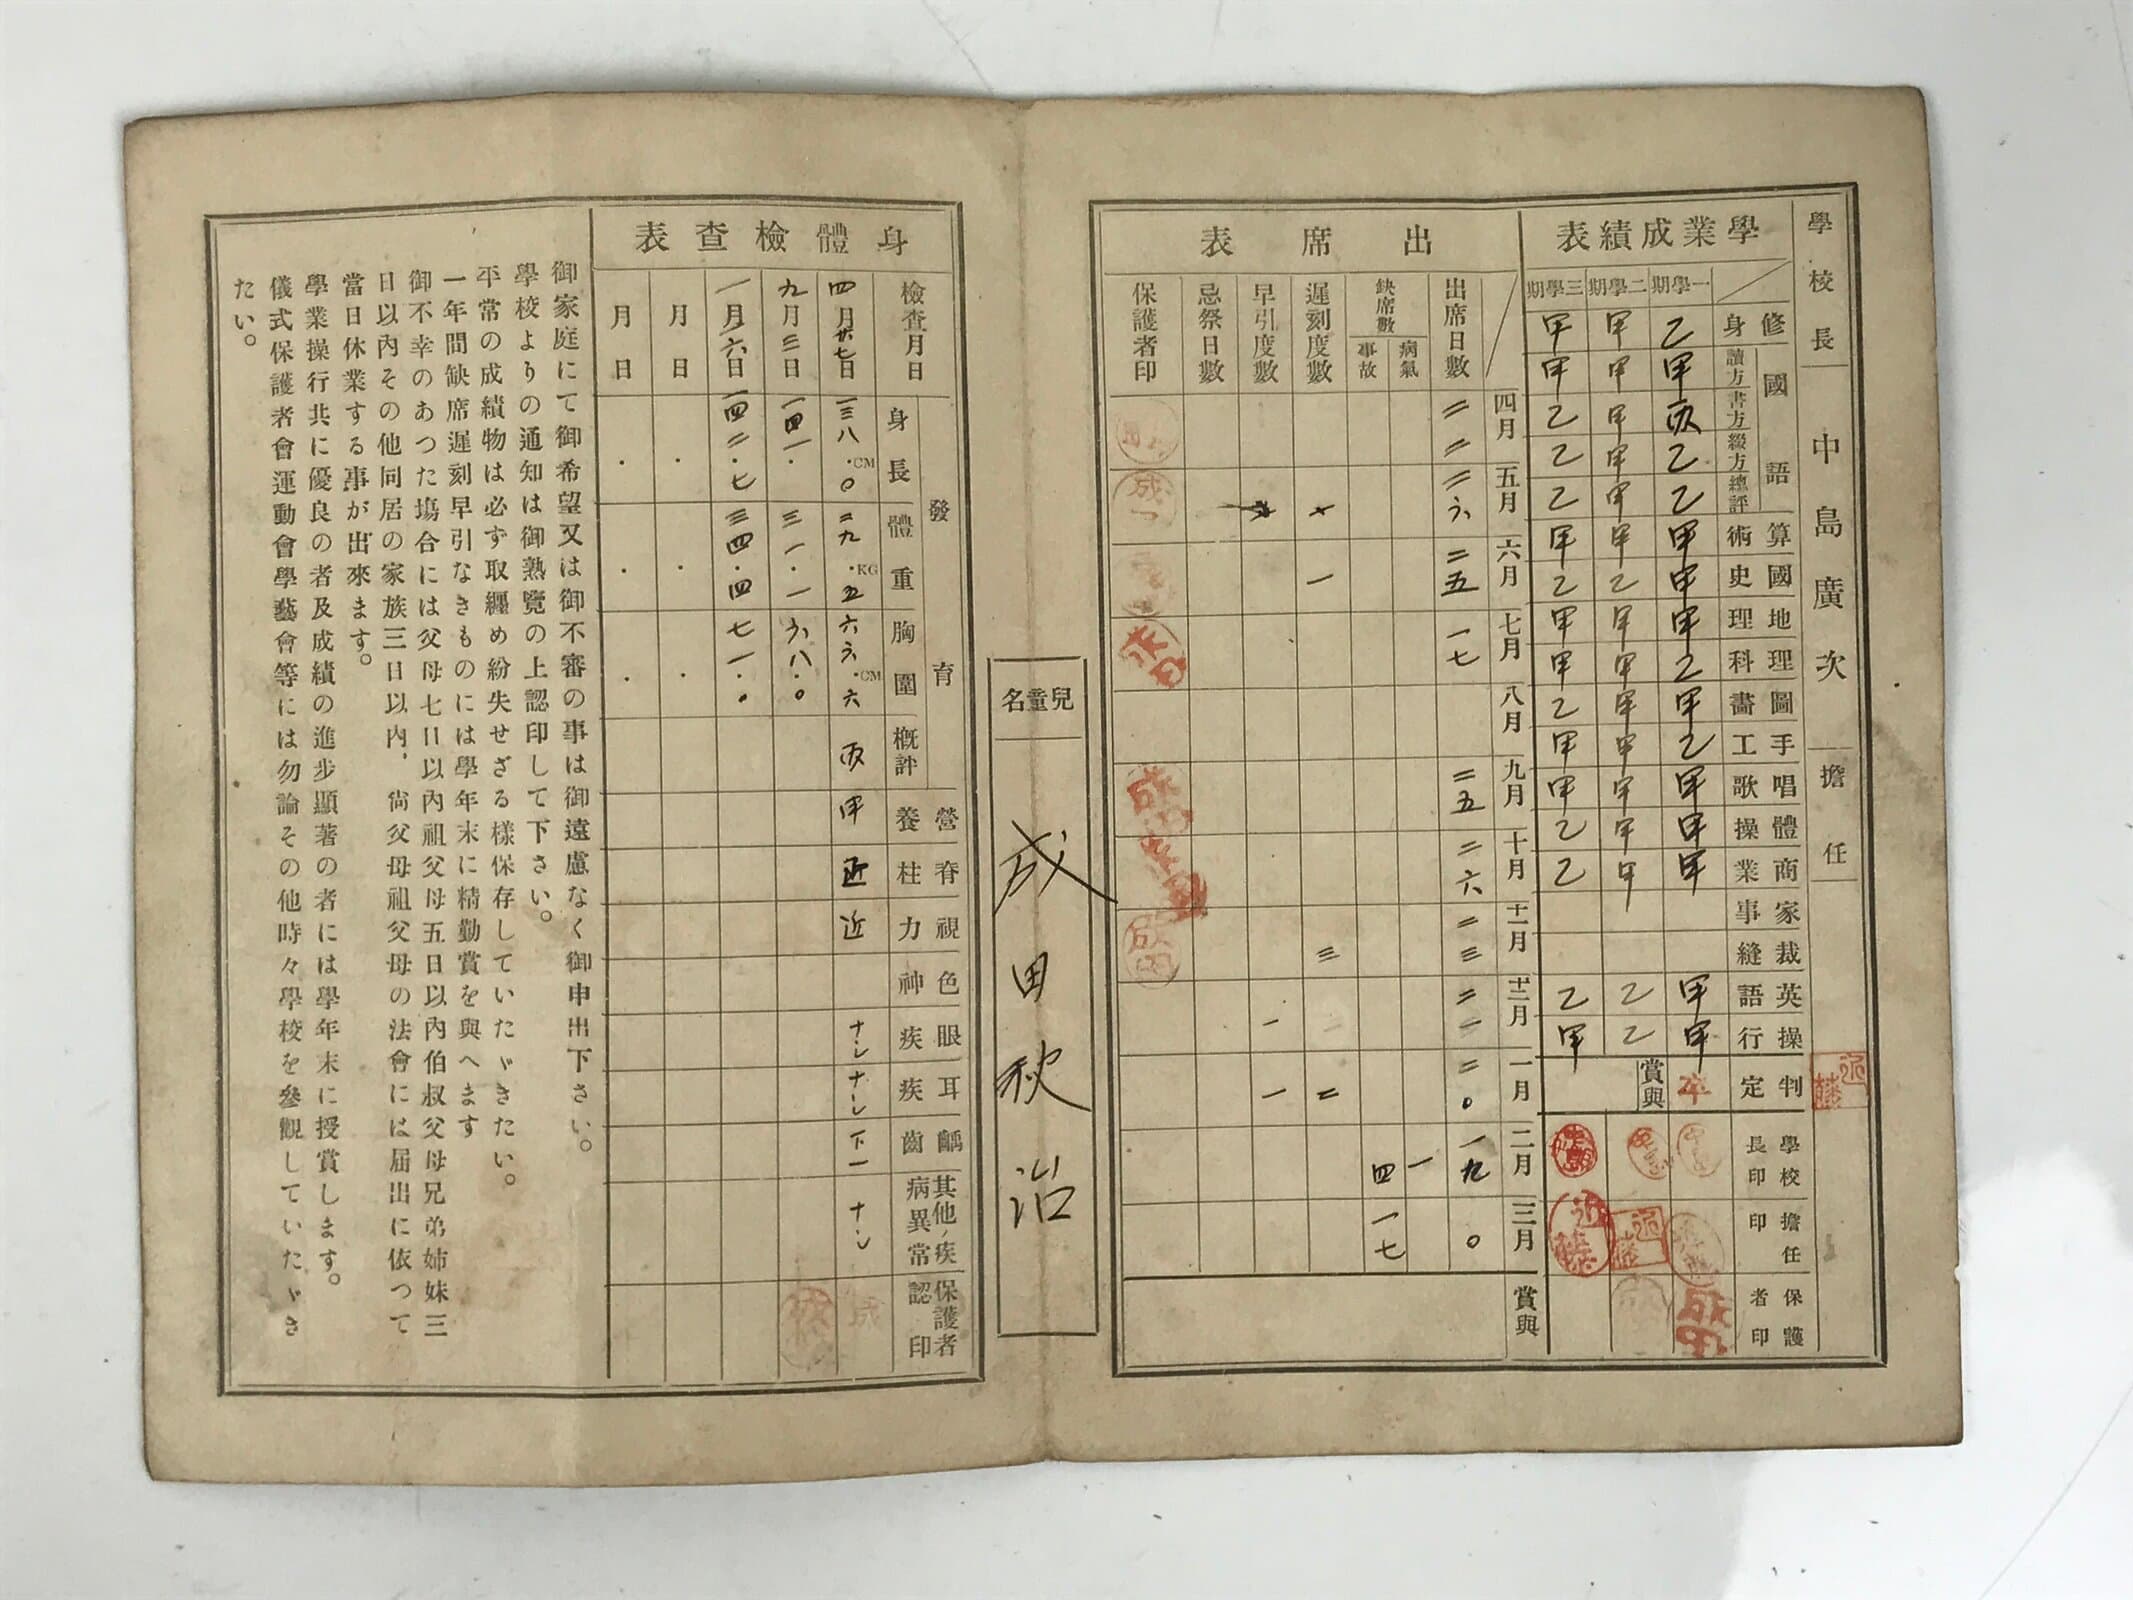 學校長 中島廣次 擔任 近藤
學業成績表
一學期 二學期 三學期
修身 乙 甲 甲
國語
讀方 甲 甲 甲
書方 丙 甲 乙
綴方 乙 甲 乙
總評 乙 甲 乙
算術 甲 甲 甲
國史 甲 乙 乙
地理 甲 甲 甲
理科 乙 甲 甲
圖畫 甲 甲 乙
手工 乙 甲 甲
唱歌 甲 甲 甲
體操 甲 甲 乙
商業 甲 甲 乙
家事
裁縫
英語 甲 乙 乙
操行 甲 乙 甲
判定 卒 賞與
學校長印
擔任印 近藤 近藤
保護者印
出席表
四月 五月 六月 七月 八月 九月 十月 十一月 十二月 一月 二月 三月 賞與
出席日數 二二 二六 二五 一七 二五 二六 二三 二一 二〇 一九 〇
缺席數
病氣 一
事故 四 一七
遲刻度數 一 三 二
早引度數 一 一
忌祭日數
保護者印
兒童名
成田秋治
身體檢查表
檢查月日 四月廿七日 九月三日 一月六日 月日 月日
發育
身長 一三八.〇CM 一四一. 一四二.七
體重 二九.五KG 三一.一 三四.四
胸圍 六六.六CM 六八.〇 七一.〇
槪評 丙
營養 甲
脊柱
視力 近
色神
眼疾 ナシ
耳疾 ナシ
齲齒 下一
其他ノ疾病異常 ナシ
保護者認印
御家庭にて御希望又は御不審の事は御遠慮なく御申出下さい。
學校よりの通知は御熟覽の上認印して下さい。
平常の成績物は必ず取纒め紛失せざる樣保存していたゞきたい。
一年間缺席遲刻早引なきものには學年末に精勤賞を與へます
御不幸のあつた塲合には父母七日以內祖父母五日以內伯叔父母兄弟姉妹三
日以內その他同居の家族三日以內、尙父母祖父母の法會には届出に依つて
當日休業する事が出來ます。
學業操行共に優良の者及成績の進步顯著の者には學年末に授賞します。
儀式保護者會運動會學藝會等には勿論その他時々學校を參觀していたゞき
たい。